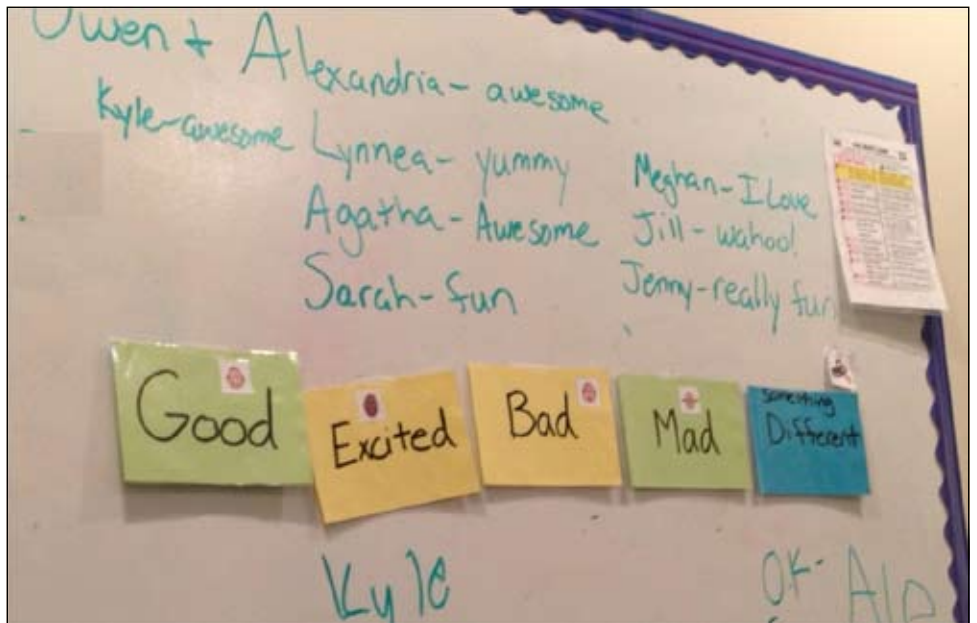 Owen + Alexandria- awesome
Kyle-awesome
Lynnea- yummy
Agatha- Awesome
Sarah- fun
Meghan-I Love
Jill- wahoo!
Jenny-really fun
Good
Excited
Bad
Mad
something
Different
Kyle
OK- Ale